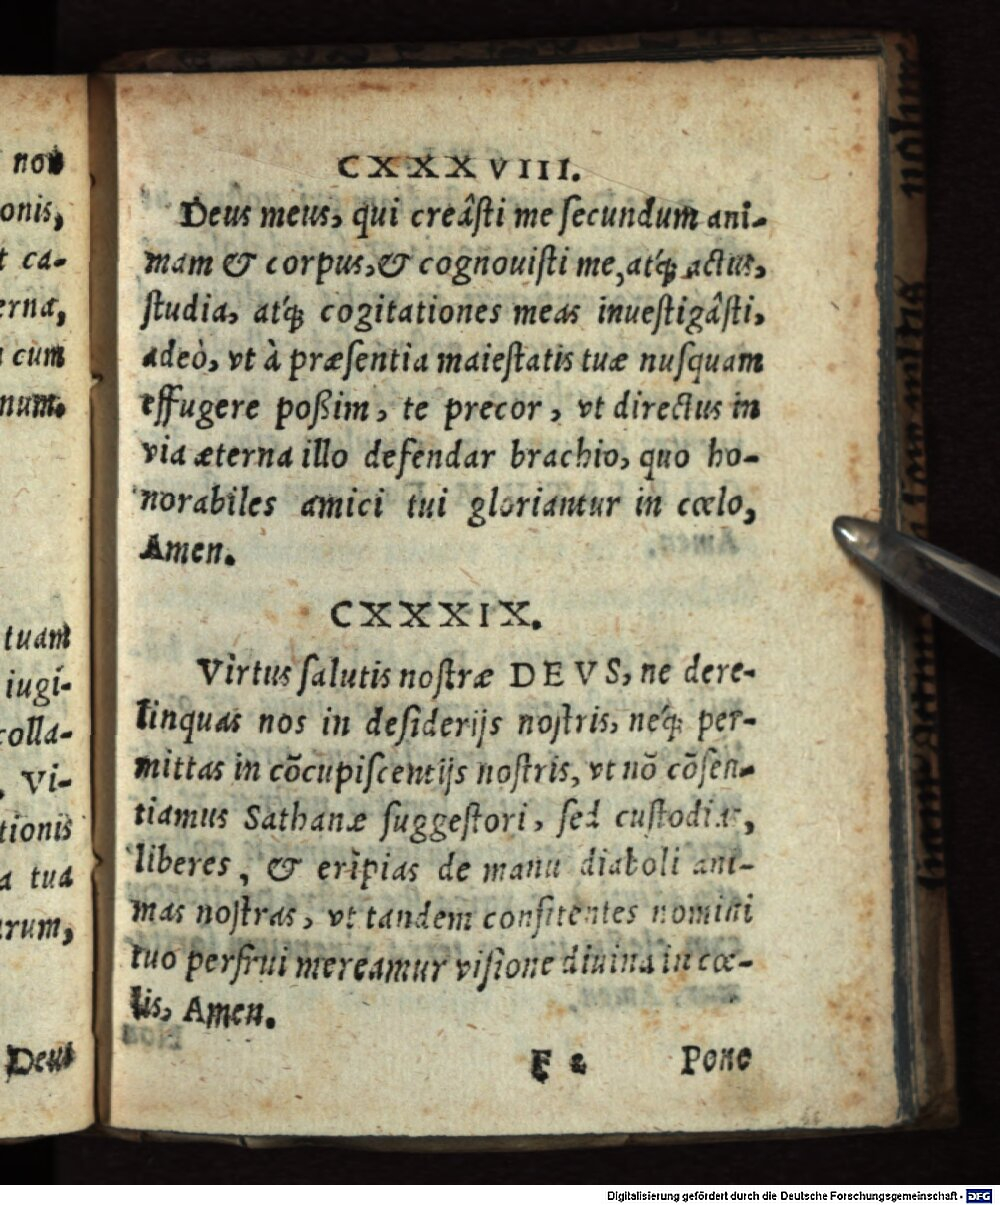 non
onis,
t ca-
erna,
cum
num.
tuam
iugi-
colla-
, Vi-
tionis
a tua
arum,
Deus
CXXXVIII.
Deus meus, qui creâſti me ſecundum ani-
mam & corpus, & cognouiſti me, atq́; actus,
ſtudia, atq́; cogitationes meas inueſtigâſti,
adeò, vt à præſentia maieſtatis tuæ nuſquam
effugere poßim, te precor, vt directus in
via æterna illo defendar brachio, quo ho-
norabiles amici tui gloriantur in cœlo,
Amen.
CXXXIX.
Virtus ſalutis noſtræ DEVS, ne dere-
linquas nos in deſiderijs noſtris, neq́; per-
mittas in cõcupiſcentijs noſtris, vt nõ cõſen-
tiamus Sathanæ ſuggeſtori, ſed cuſtodias,
liberes, & erìpias de manu diaboli ani-
mas noſtras, vt tandem confitentes nomini
tuo perfrui mereamur viſione diuina in cœ-
lis, Amen.
F 2 Pone
Digitalisierung gefördert durch die Deutsche Forschungsgemeinschaft - DFG